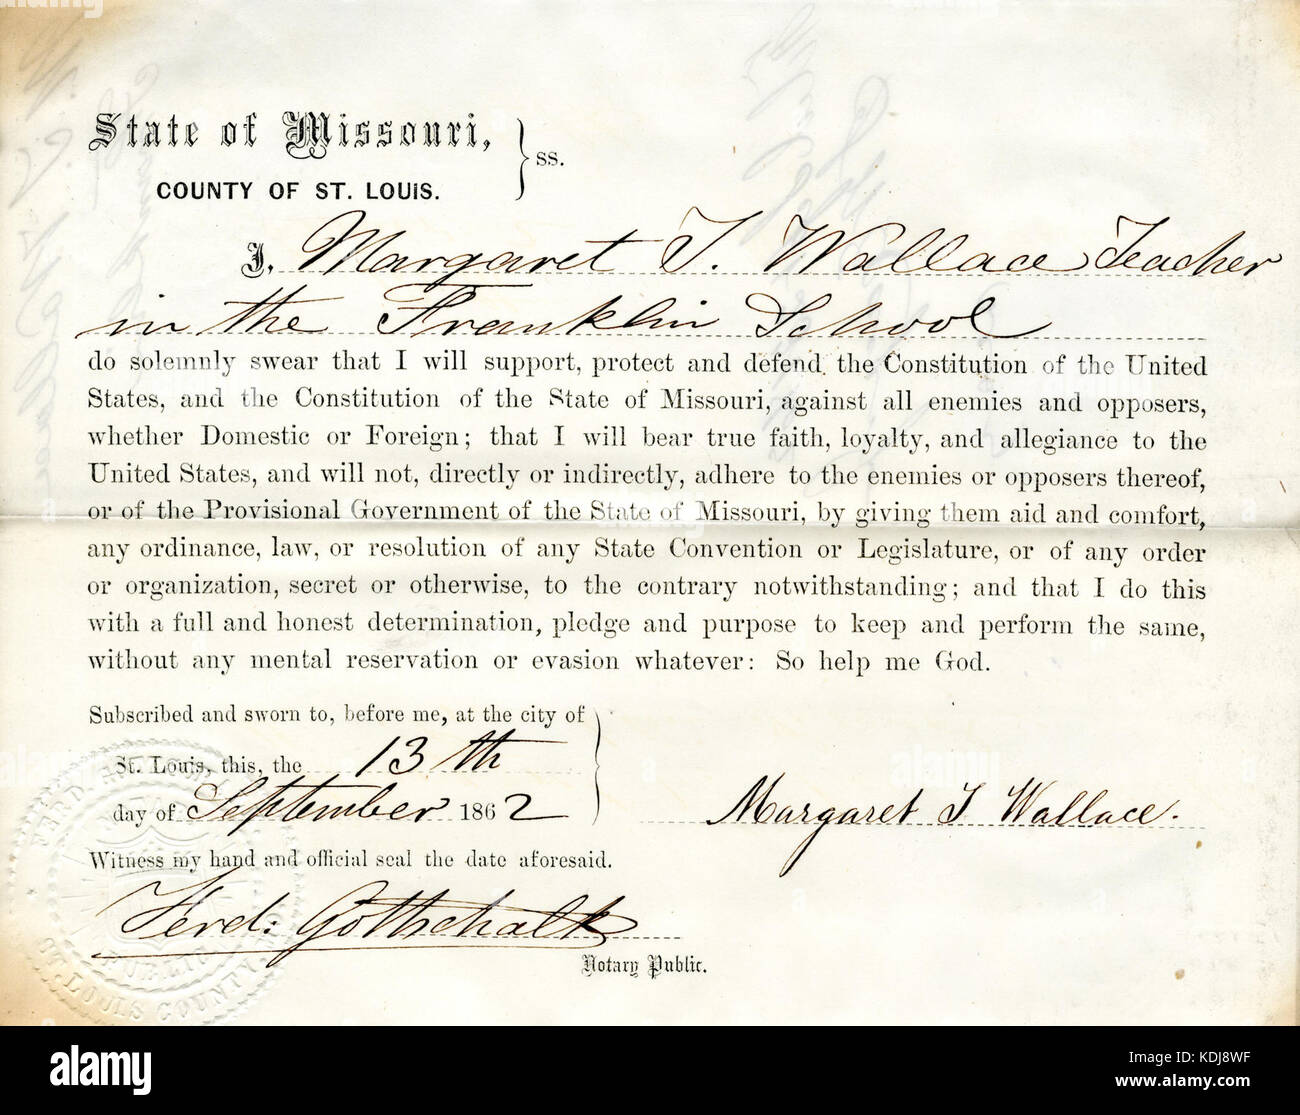 State of Missouri,
COUNTY OF ST. LOUIS.
} ss.
I, Margaret T. Wallace Teacher
in the Franklin School
do solemnly swear that I will support, protect and defend the Constitution of the United
States, and the Constitution of the State of Missouri, against all enemies and opposers,
whether Domestic or Foreign; that I will bear true faith, loyalty, and allegiance to the
United States, and will not, directly or indirectly, adhere to the enemies or opposers thereof,
or of the Provisional Government of the State of Missouri, by giving them aid and comfort,
any ordinance, law, or resolution of any State Convention or Legislature, or of any order
or organization, secret or otherwise, to the contrary notwithstanding; and that I do this
with a full and honest determination, pledge and purpose to keep and perform the same,
without any mental reservation or evasion whatever: So help me God.
Subscribed and sworn to, before me, at the city of
St. Louis, this, the 13th
day of September 1862
Margaret T Wallace.
Witness my hand and official seal the date aforesaid.
Ferd: Gottschalk
Notary Public.
FERD.
PUBLIC
ST. LOUIS COUNTY, MO
alamy
Image ID: KDJ8WF
www.alamy.com